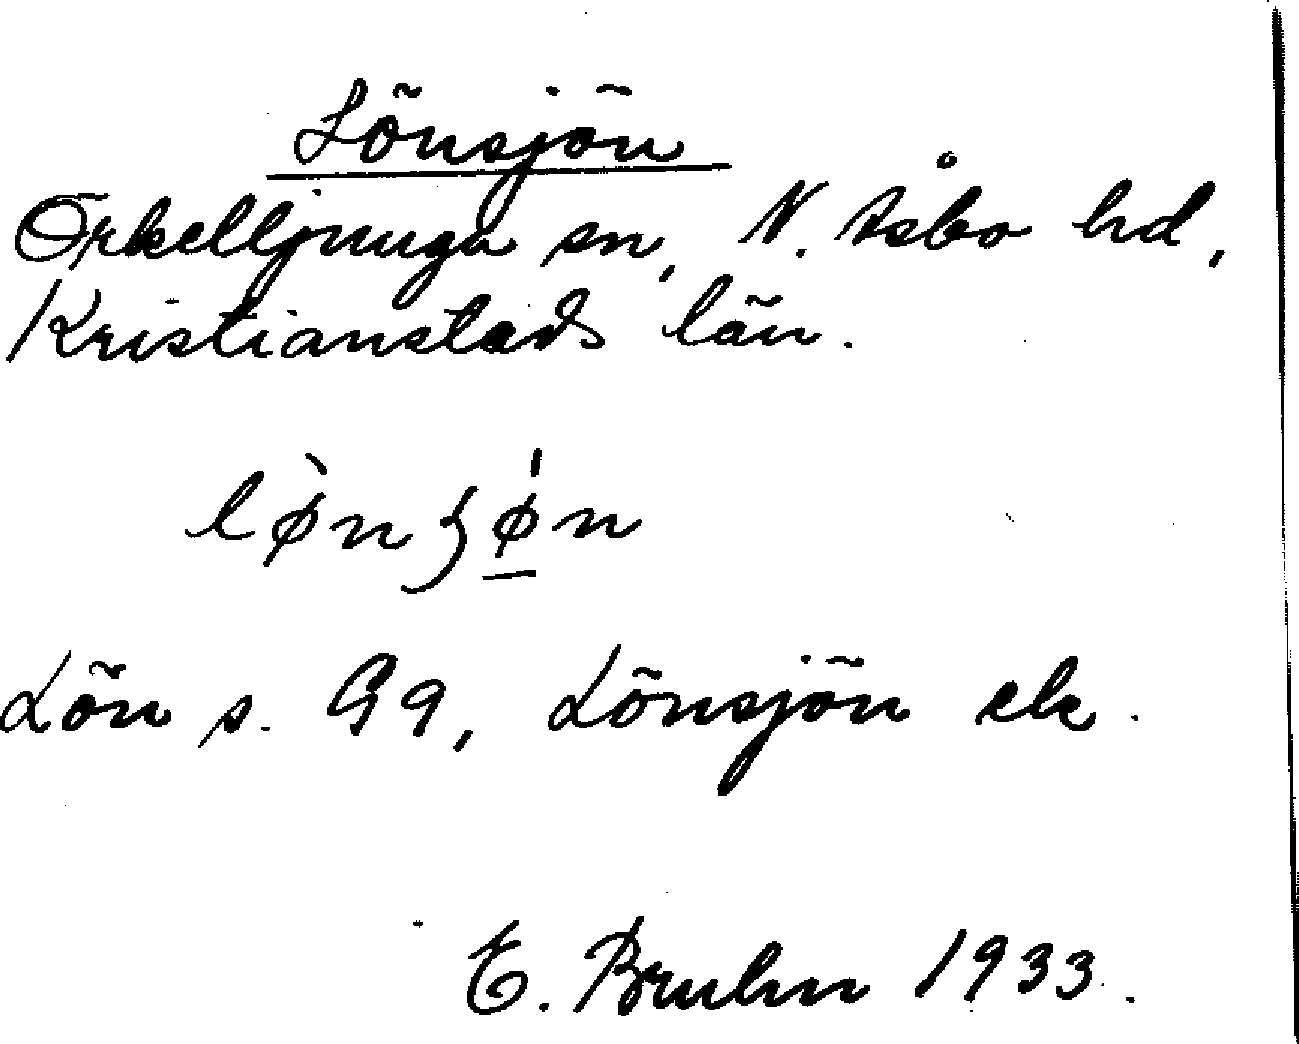 Lönsjön
Örkelljunga sn, N. Åsbo hd,
Kristianstads län.
lø̀nʒǿ̠n
Lön s. G9, Lönsjön ek.
E. Bruhn 1933.